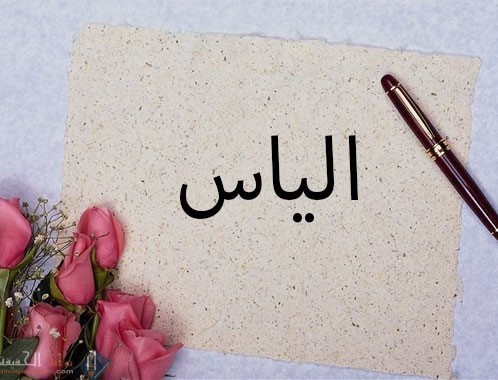 الياس